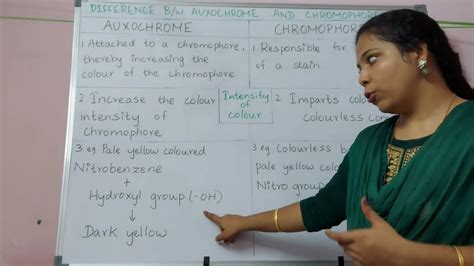 DIFFERENCE B/W AUXOCHROME AND CHROMOPHORE
AUXOCHROME
CHROMOPHOR
1 Attached to a chromophore,
thereby increasing the
colour of the chromophore
1 Responsible for
of a stain
2 Increase the colour
intensity of
chromophore.
Intensity
of
colour
2 Imparts
colourless
3 eg. Pale yellow coloured
Nitrobenzene
+
Hydroxyl group (-OH)
↓
Dark yellow
3 eg. Colourless
pale yellow
Nitro